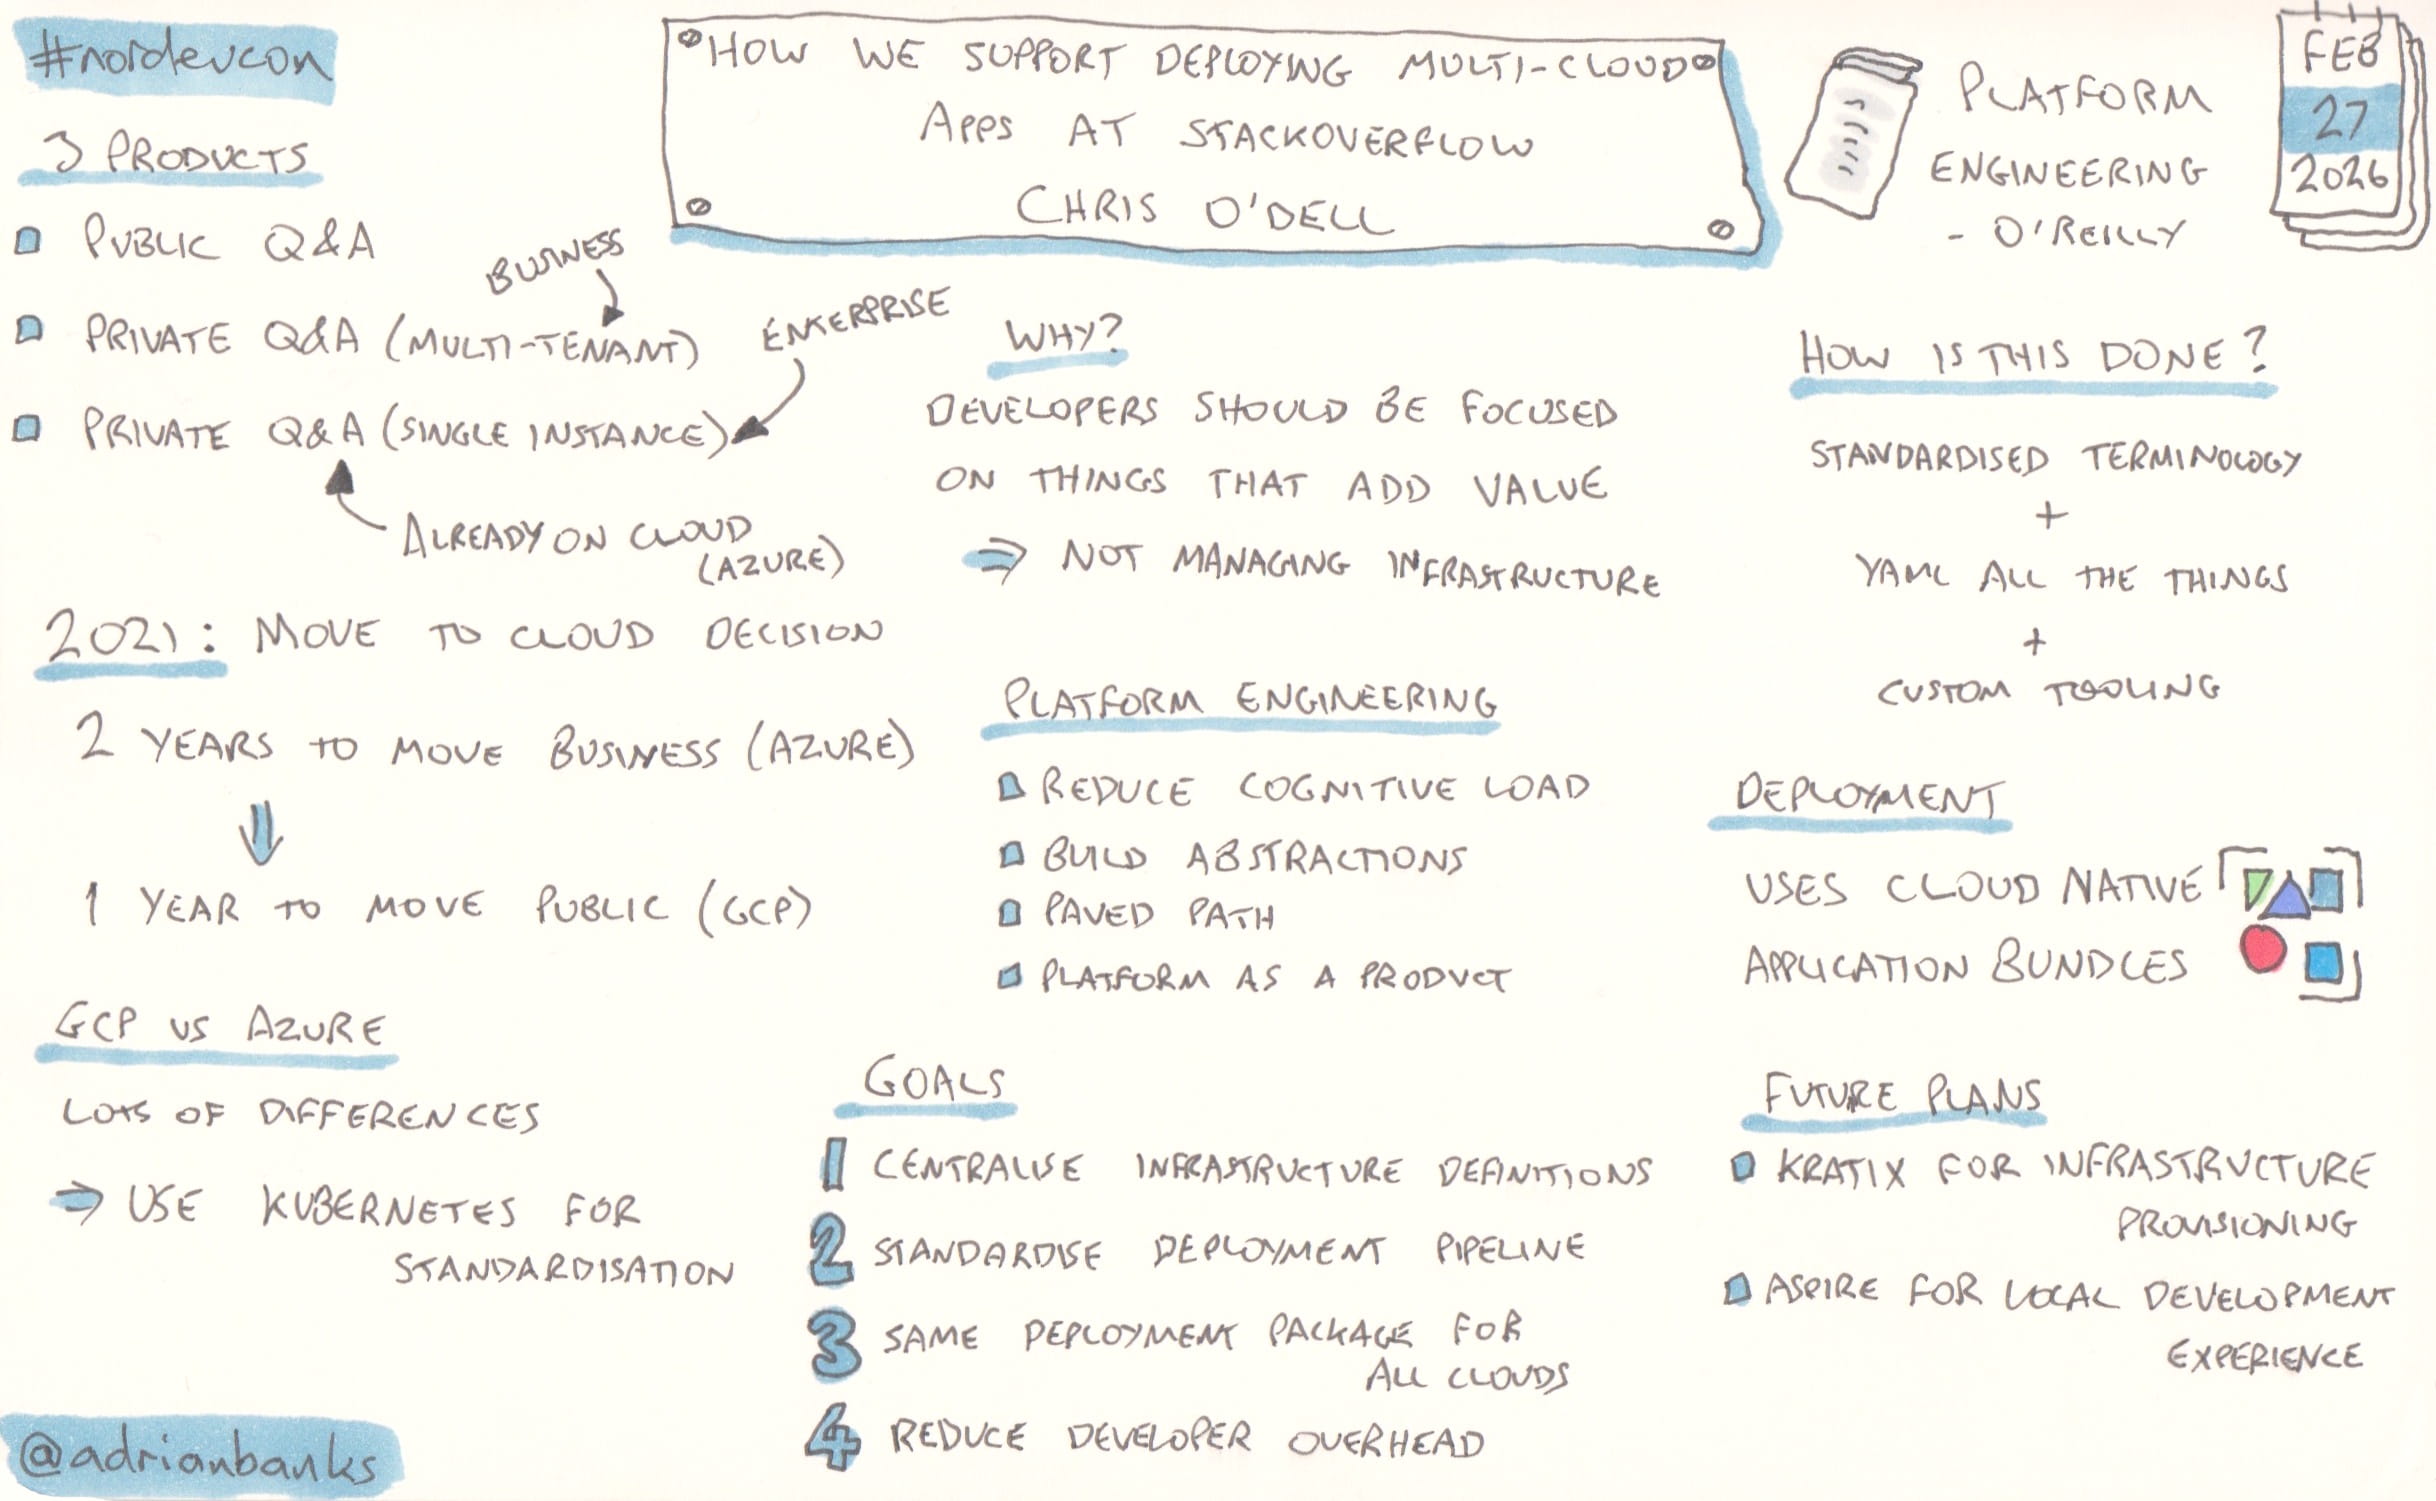 #nordevcon
HOW WE SUPPORT DEPLOYING MULTI-CLOUD
APPS AT STACKOVERFLOW
CHRIS O'DELL
PLATFORM
ENGINEERING
- O'REILLY
FEB
27
2026
3 PRODUCTS
PUBLIC Q&A
BUSINESS
PRIVATE Q&A (MULTI-TENANT)
ENTERPRISE
PRIVATE Q&A (SINGLE INSTANCE)
ALREADY ON CLOUD
(AZURE)
2021: MOVE TO CLOUD DECISION
2 YEARS TO MOVE BUSINESS (AZURE)
1 YEAR TO MOVE PUBLIC (GCP)
GCP VS AZURE
LOTS OF DIFFERENCES
⇒ USE KUBERNETES FOR
STANDARDISATION
@adrianbanks
WHY?
DEVELOPERS SHOULD BE FOCUSED
ON THINGS THAT ADD VALUE
⇒ NOT MANAGING INFRASTRUCTURE
PLATFORM ENGINEERING
REDUCE COGNITIVE LOAD
BUILD ABSTRACTIONS
PAVED PATH
PLATFORM AS A PRODUCT
GOALS
1 CENTRALISE INFRASTRUCTURE DEFINITIONS
2 STANDARDISE DEPLOYMENT PIPELINE
3 SAME DEPLOYMENT PACKAGE FOR
ALL CLOUDS
4 REDUCE DEVELOPER OVERHEAD
HOW IS THIS DONE?
STANDARDISED TERMINOLOGY
+
YAML ALL THE THINGS
+
CUSTOM TOOLING
DEPLOYMENT
USES CLOUD NATIVE
APPLICATION BUNDLES
FUTURE PLANS
KRATIX FOR INFRASTRUCTURE
PROVISIONING
ASPIRE FOR LOCAL DEVELOPMENT
EXPERIENCE